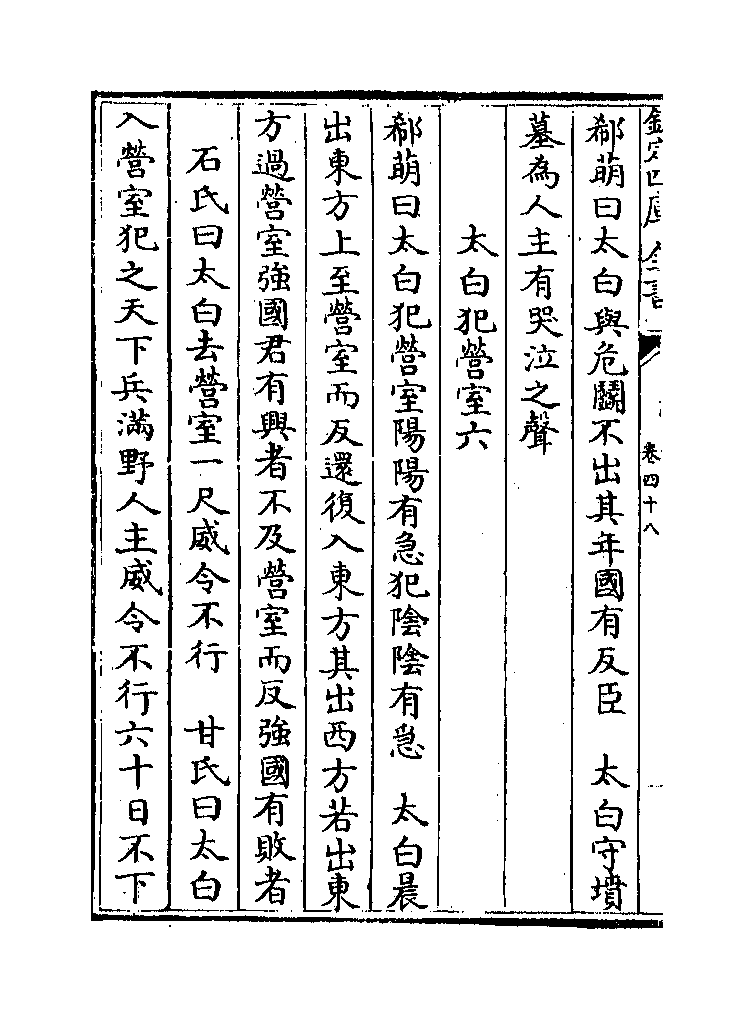 欽定四庫全書
卷四十八
郗萌曰太白與危鬭不出其年國有反臣　太白守墳
墓為人主有哭泣之聲
太白犯營室六
郗萌曰太白犯營室陽陽有急犯陰陰有急　太白晨
出東方上至營室而反還復入東方其出西方若出東
方過營室強國君有興者不及營室而反強國有敗者
石氏曰太白去營室一尺威令不行　甘氏曰太白
入營室犯之天下兵滿野人主威令不行六十日不下